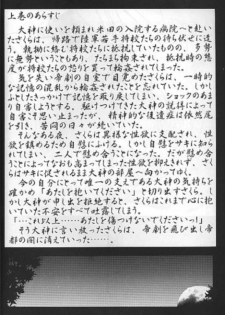 上巻のあらすじ
大神に使いを頼まれ米田の入院する病院へと赴い
たさくらは、帰路で陸軍若手将校たちの待ち伏せに遭
う。執拗に絡む将校たちに抵抗していたものの、多勢
に無勢ということもあり、たちまち拘束され、抵抗時の態
度が将校たちの怒りを買って輪姦されてしまった。
気を失い帝劇の自室で目覚めたさくらは、一時的
な記憶の混乱から輪姦されたことを忘れていた。しか
しふとしたきっかけで記憶を取り戻してしまい、ショックのあま
り自害しようとする。駆けつけてきた大神の説得によって
自害こそ思い止まったが、精神的な後遺症は依然尾
を引き、苦悶の日々が続いていた。
そんなある夜、さくらは異様な性欲に支配され、性
欲を鎮めるため自慰にふける。しかし自慰をサキに知ら
れてしまい、二人で慰め合うことになった。だが慰め合
うことによってなおも高まってしまった性欲を抑えきれず、さく
らはサキに促されるまま大神の部屋へ向かってゆく。
今の自分にとって唯一の支えである大神の気持ちを
確かめ「あたしを抱いてください」と切り出すさくら。し
かし大神が申し出を拒絶すると、さくらはこれまで心に抱
いていた不安をすべて吐露してしまう。
「…これ以上……あたしを傷つけないでくださいっ!」
そう大神に言い放ったさくらは、帝劇を飛び出し帝
都の闇に消えていった……。